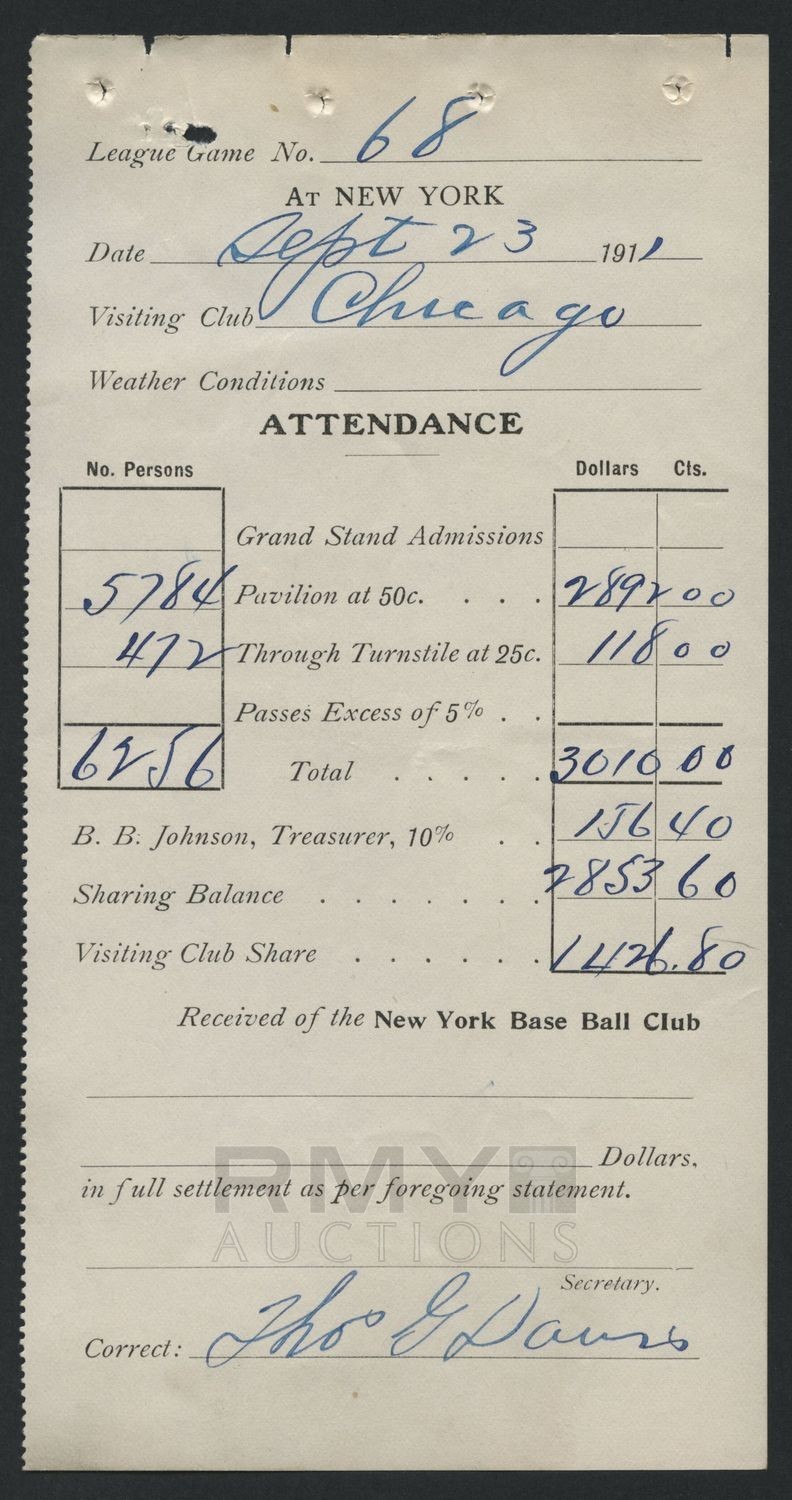 League Game No. 68
AT NEW YORK
Date Sept 23 1911
Visiting Club Chicago
Weather Conditions
ATTENDANCE
No. Persons Dollars Cts.
Grand Stand Admissions
5784 Pavilion at 50c. . . . 2892 00
472 Through Turnstile at 25c. 118 00
Passes Excess of 5% . .
6256 Total . . . . . 3010 00
B. B. Johnson, Treasurer, 10% . . 156 40
Sharing Balance . . . . . . . 2853 60
Visiting Club Share . . . . . . 1426.80
Received of the New York Base Ball Club
Dollars,
in full settlement as per foregoing statement.
RMY
AUCTIONS
Secretary.
Correct: Thos G Davis